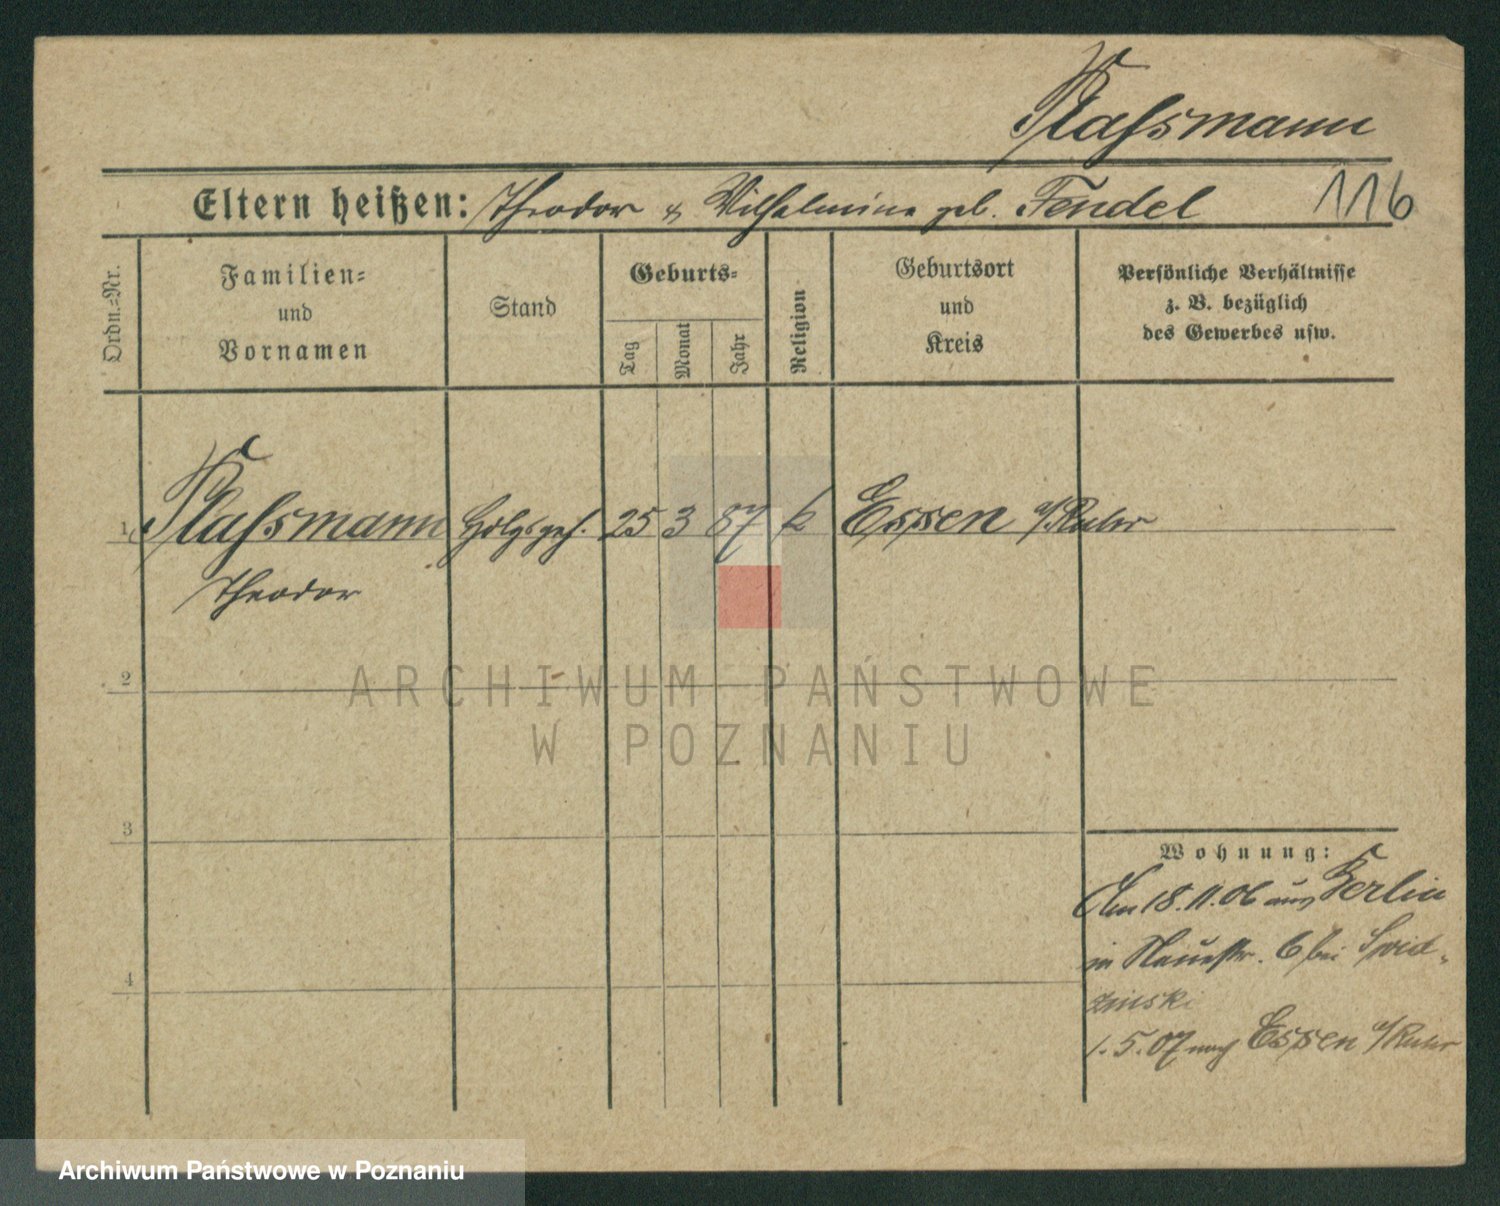 Klaßmann
Eltern heißen: Theodor & Wilhelmine geb. Fendel
116
Ordn.-Nr.
Familien- und Vornamen
Stand
Geburts-
Tag
Monat
Jahr
Religion
Geburtsort und Kreis
Persönliche Verhältnisse
z. B. bezüglich
des Gewerbes usw.
1 Klaßmann 25 3 87 k Essen a/Ruhr
Theodor
2
3
4
Wohnung:
Am 18.11.06 aus Berlin
in Neuestr. 6 bei
zinski
1.5.07 nach Essen a/Ruhr
ARCHIWUM PAŃSTWOWE
W POZNANIU
Archiwum Państwowe w Poznaniu